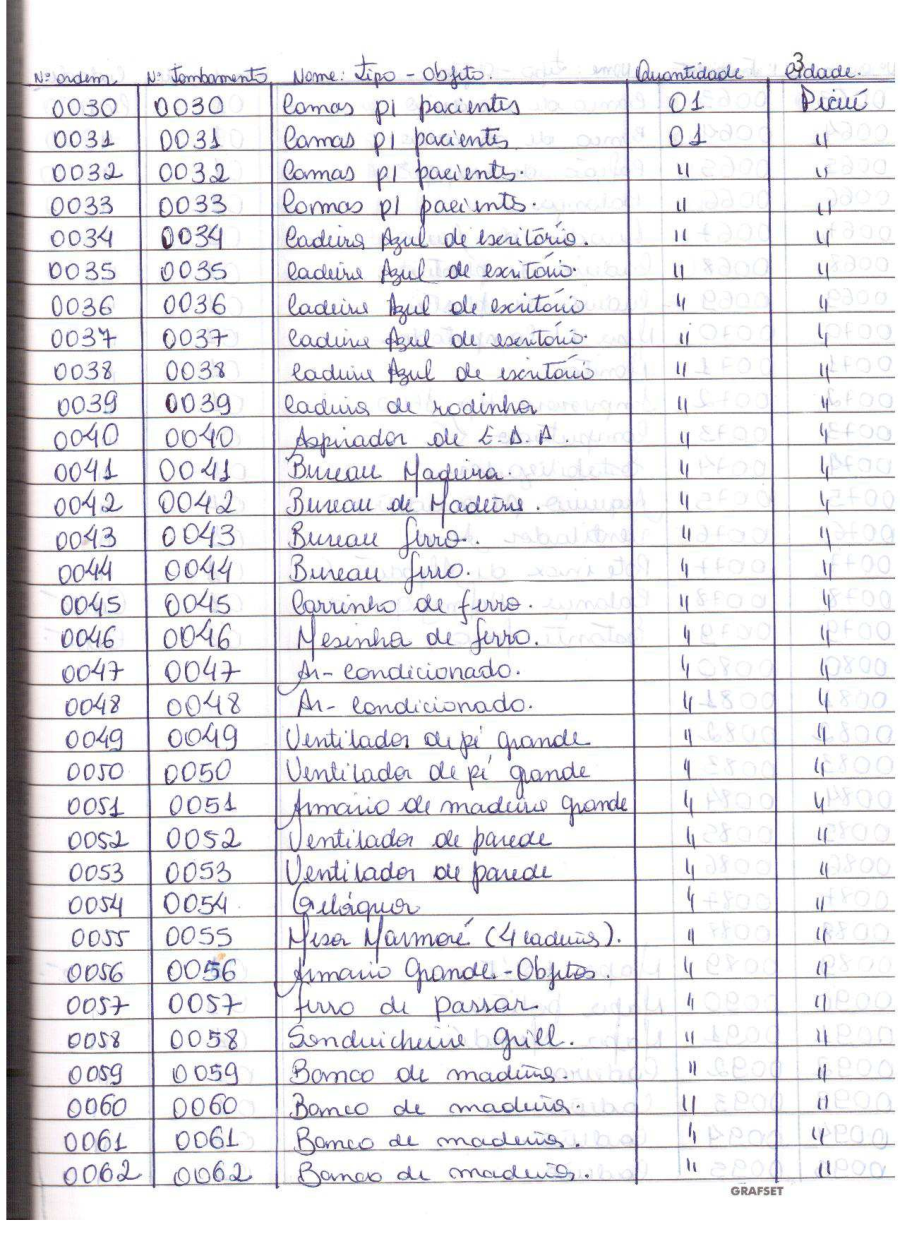 3
Nº ordem Nº Tombamento Nome: Tipo - Objeto. Quantidade Cidade.
0030 0030 Camas p/ pacientes 01 Picuí
0031 0031 Camas p/ pacientes 01 "
0032 0032 Camas p/ pacientes. " "
0033 0033 Camas p/ pacientes. " "
0034 0034 Cadeira Azul de escritório. " "
0035 0035 Cadeira Azul de escritório. " "
0036 0036 Cadeira Azul de escritório " "
0037 0037 Cadeira Azul de escritório. " "
0038 0038 Cadeira Azul de escritório " "
0039 0039 Cadeira de rodinha " "
0040 0040 Aspirador de E.D.A. " "
0041 0041 Bureau Madeira. " "
0042 0042 Bureau de Madeira. " "
0043 0043 Bureau ferro. " "
0044 0044 Bureau ferro. " "
0045 0045 Carrinho de ferro. " "
0046 0046 Mesinha de ferro. " "
0047 0047 Ar-Condicionado. " "
0048 0048 Ar-Condicionado. " "
0049 0049 Ventilador de pé grande " "
0050 0050 Ventilador de pé grande " "
0051 0051 Armario de madeira grande " "
0052 0052 Ventilador de parede " "
0053 0053 Ventilador de parede " "
0054 0054 Geláguar " "
0055 0055 Mesa Marmoré (4 cadeiras). " "
0056 0056 Armario Grande-Objetos. " "
0057 0057 ferro de passar " "
0058 0058 Sanduicheira Grill. " "
0059 0059 Banco de madeira. " "
0060 0060 Banco de madeira. " "
0061 0061 Banco de madeira. " "
0062 0062 Banco de madeira. " "
GRAFSET